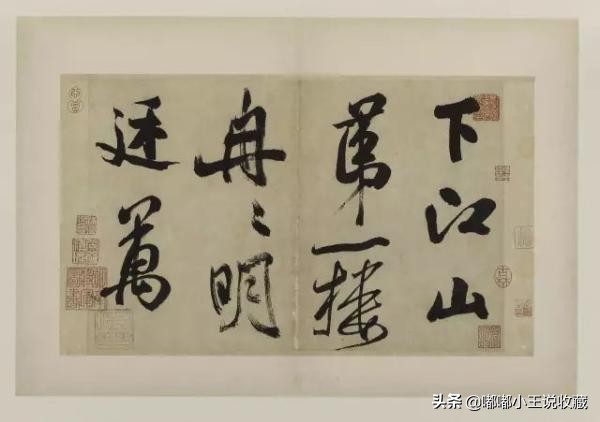 下江山
第一樓
冉〻明
廷萬
头条 @嘟嘟小王说收藏